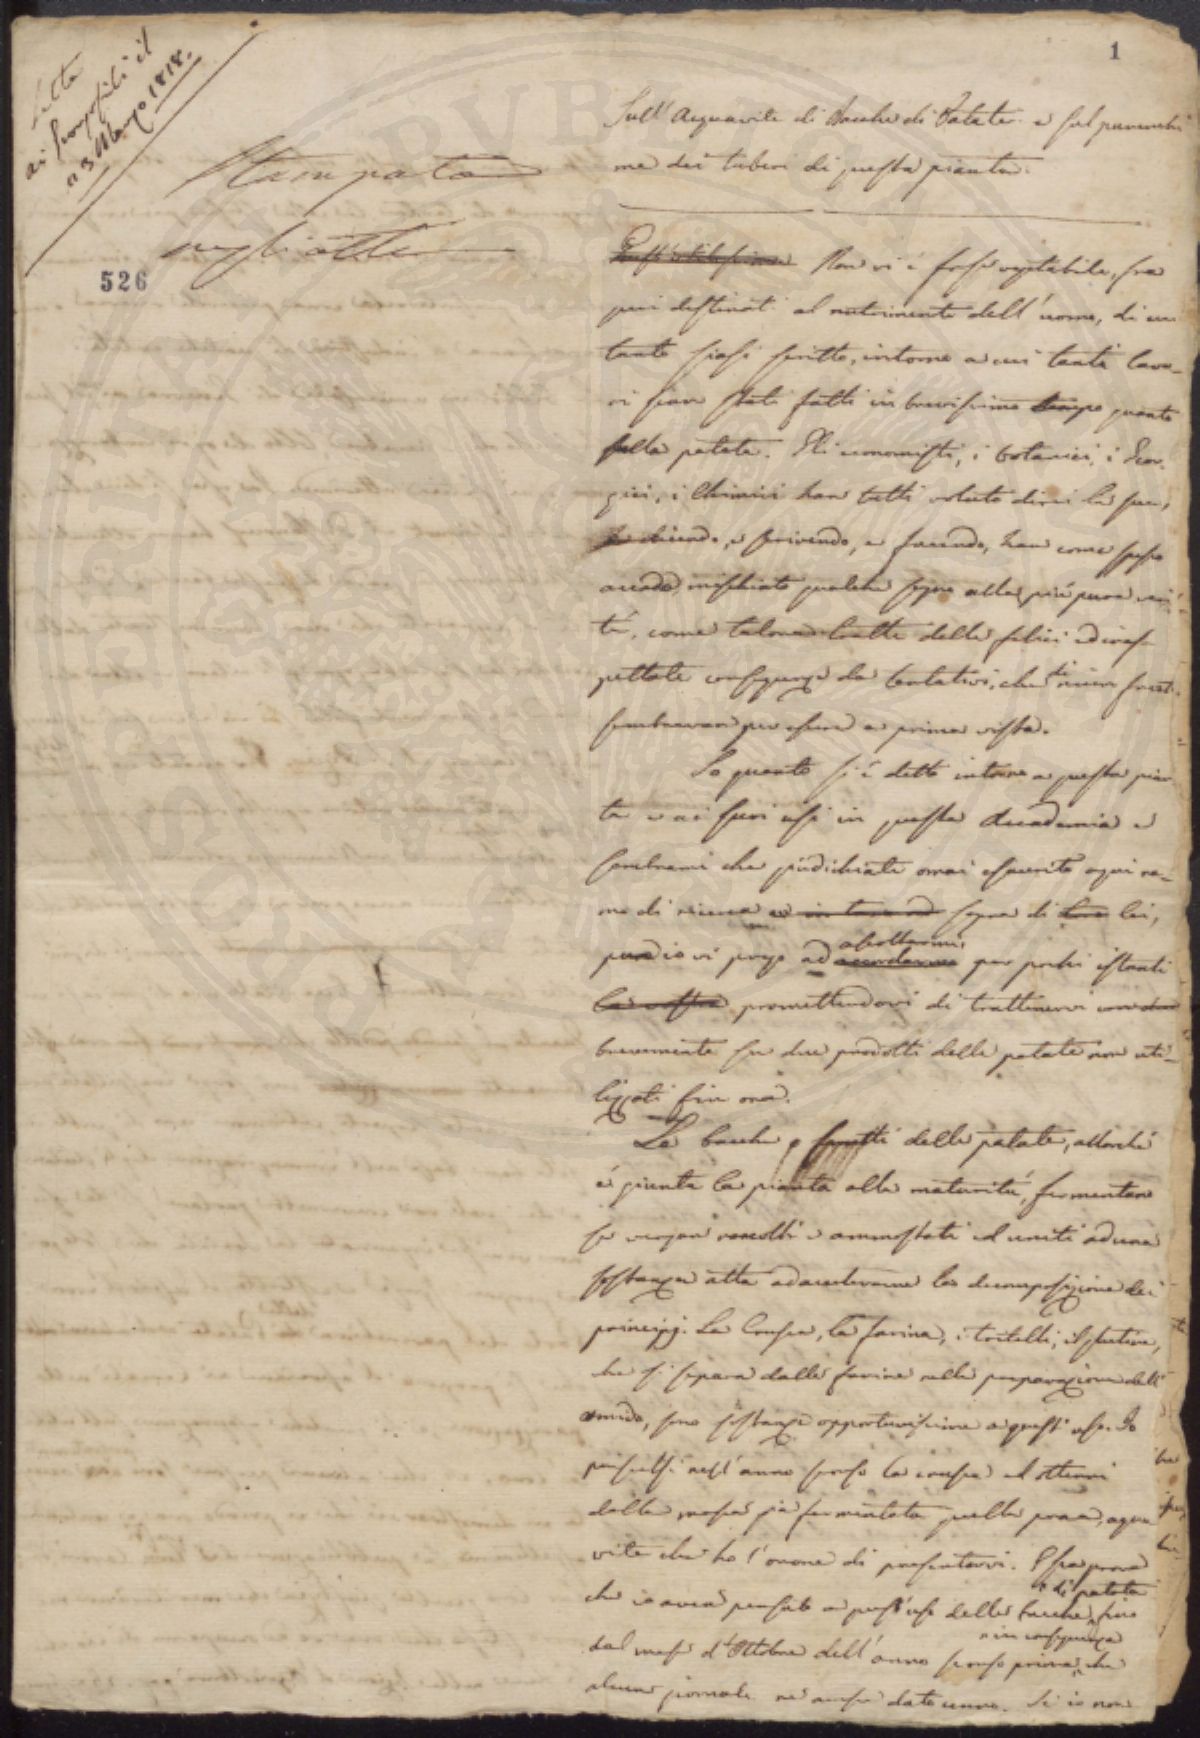 1
Letta
ai Georgofili il
a 3 Marzo 1818.
Stampata
negli atti
526
Sull' Acquavite di Bacche di Patate e sul parenchi
ma dei tuberi di questa pianta.
Non vi è forse vegetabile, fra
quei destinati al nutrimento dell' uomo, di cui
tanto siasi scritto, intorno a cui tanti lavo-
ri sieno stati fatti in brevissimo tempo quanto
sulla patata. Gli economisti, i botanici, i Geor-
gici, i Chimici han tutti voluto dirci la sua,
e dicendo, e scrivendo, e facendo, han come spesso
accade mischiato qualche sogno alla più pura veri-
tà, come talora tratte delle felici ed inas-
pettate conseguenze da tentativi, che
sembravan per essere a prima vista.
So quanto si è detto intorno a questa pian
ta e ai suoi usi in questa Accademia e
sembrami che giudichiate omai esaurito ogni ra-
mo di ricerca sopra di lei,
pure io vi prego ad ascoltarmi per pochi istanti
promettendovi di trattenervi
brevemente su due prodotti delle patate non uti-
lizzati fin ora.
Le bacche o frutti delle patate, allorchè
è giunta la pianta alla maturità, fermentano
se vengan raccolti e ammostati ed uniti ad una
sostanza atta ad accelerarne la decomposizione dei
principj. La Crusca, la farina, i tritelli, il glutine,
che si separa dalla farina nella preparazione dell'
amido, sono sostanze opportunissime a questi usi. Io
prescelsi nell' anno scorso la crusca ed ottenni
dalla massa già fermentata quella poca acqua
vite che ho l' onore di presentarvi. Essa prova
che io avea pensato a quest' uso delle bacche di patate fino
dal mese d' Ottobre dell' anno scorso e in conseguenza prima che
alcun giornale ne avesse dato cenno. Se io non